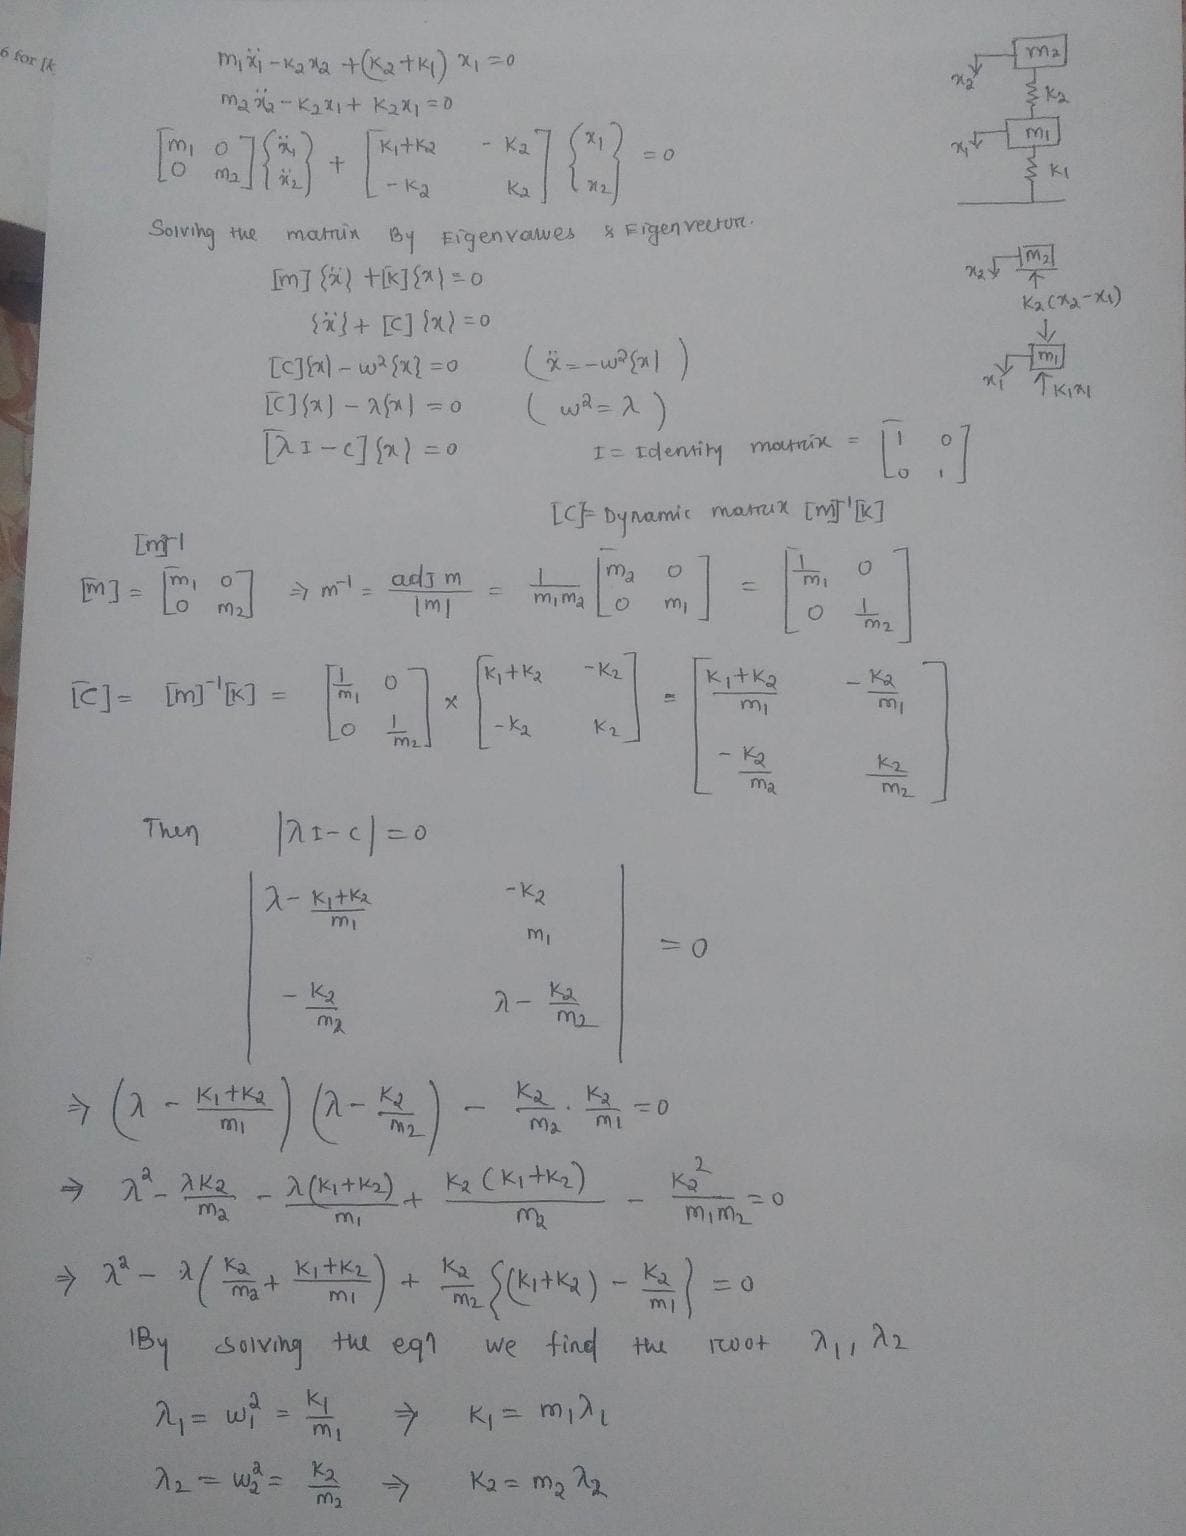 6 for [k
m₁ẍ₁ - K₂x₂ + (K₂+K₁) x₁ = 0
m₂ẍ₂ - K₂x₁ + K₂x₁ = 0
[m₁ 0; 0 m₂] {ẍ₁; ẍ₂} + [K₁+K₂ -K₂; -K₂ K₂] {x₁; x₂} = 0
m₂
x₂
K₂
m₁
x₁
K₁
Solving the matrix By Eigenvalues & Eigenvector.
[m] {ẍ} + [K]{x} = 0
{ẍ} + [C] {x} = 0
[C]{x} - ω²{x} = 0 (ẍ = -ω²{x})
[C]{x} - λ{x} = 0 (ω² = λ)
[λI - C]{x} = 0 I = Identity matrix = [1 0; 0 1]
x₂ m₂
K₂(x₂-x₁)
x₁ m₁
K₁x₁
[C] = Dynamic matrix [m]⁻¹[K]
[m]⁻¹
[m] = [m₁ 0; 0 m₂] ⇒ m⁻¹ = adj m / |m| = 1/m₁m₂ [m₂ 0; 0 m₁] = [1/m₁ 0; 0 1/m₂]
[C] = [m]⁻¹[K] = [1/m₁ 0; 0 1/m₂] × [K₁+K₂ -K₂; -K₂ K₂] = [K₁+K₂/m₁ -K₂/m₁; -K₂/m₂ K₂/m₂]
Then |λI - C| = 0
|λ - K₁+K₂/m₁ -K₂ m₁; -K₂/m₂ λ - K₂/m₂| = 0
⇒ (λ - K₁+K₂/m₁) (λ - K₂/m₂) - K₂/m₂ · K₂/m₁ = 0
⇒ λ² - λK₂/m₂ - λ(K₁+K₂)/m₁ + K₂(K₁+K₂)/m₂ - K₂²/m₁m₂ = 0
⇒ λ² - λ(K₂/m₂ + K₁+K₂/m₁) + K₂/m₂ {(K₁+K₂) - K₂/m₁} = 0
By solving the eqn we find the root λ₁, λ₂
λ₁ = ω₁² = K₁/m₁ ⇒ K₁ = m₁λ₁
λ₂ = ω₂² = K₂/m₂ ⇒ K₂ = m₂λ₂